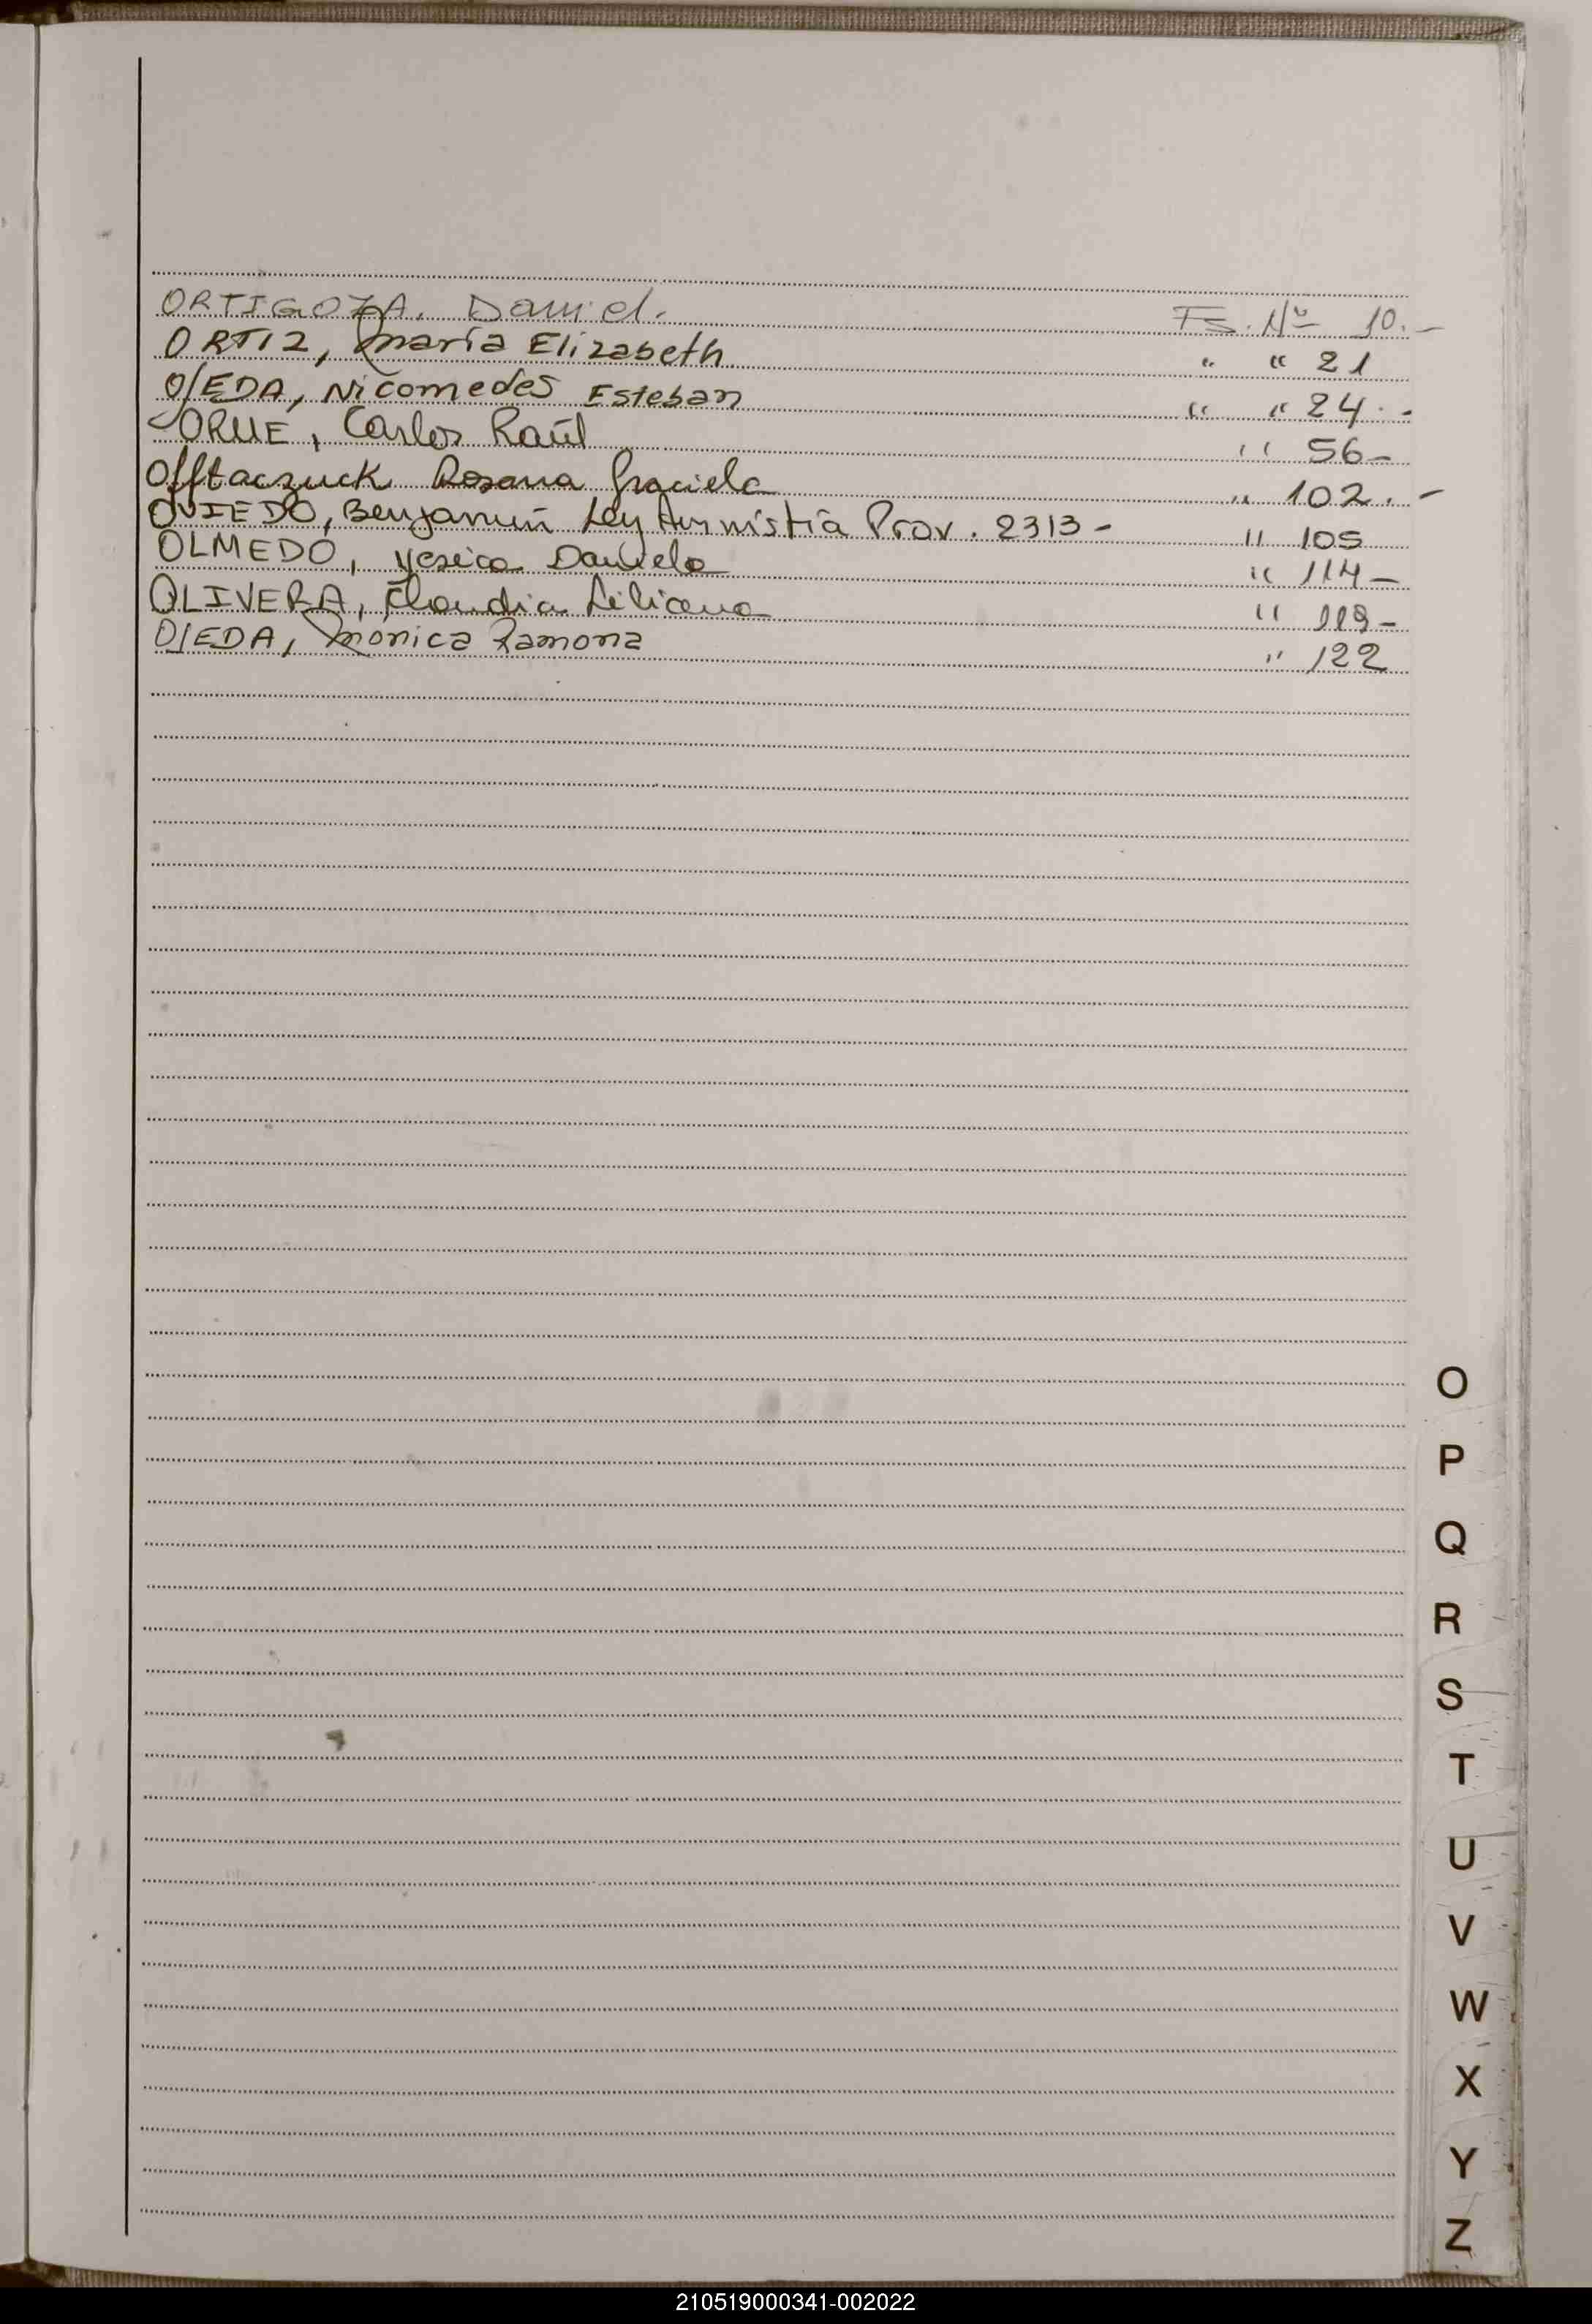 ORTIGOZA. Daniel. Fs. Nº 10.-
ORTIZ, María Elizabeth " " 21
OJEDA, Nicomedes Esteban " " 24.-
ORUE, Carlos Raúl " 56-
Offtaczuck Rosana Graciela " 102.-
OVIEDO, Benjamín Ley Ammistía Prov. 2313- " 105
OLMEDO, Yesica Daniela " 114-
OLIVERA, Claudia Liliana " 119-
OJEDA, Mónica Ramona " 122
O
P
Q
R
S
T
U
V
W
X
Y
Z
210519000341-002022